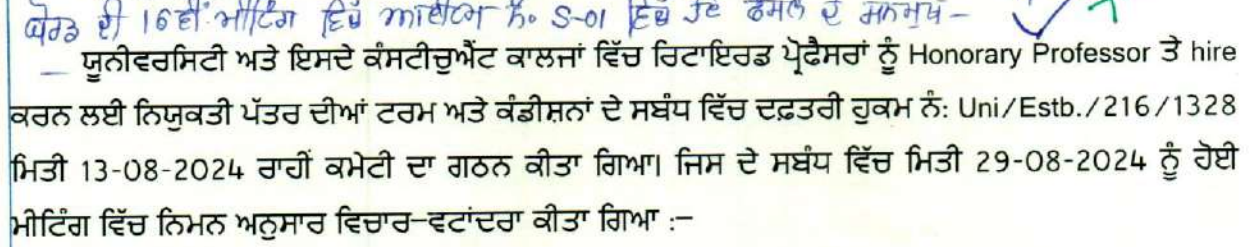 ਬੋਰਡ ਦੀ 16ਵੀਂ ਮੀਟਿੰਗ ਵਿਚ ਆਈਟਮ ਨੰ. S-01 ਵਿਚ ਹੋਏ ਫੈਸਲੇ ਦੇ ਸਨਮੁੱਖ -
ਯੂਨੀਵਰਸਿਟੀ ਅਤੇ ਇਸਦੇ ਕੰਸਟੀਚੁਐਂਟ ਕਾਲਜਾਂ ਵਿੱਚ ਰਿਟਾਇਰਡ ਪ੍ਰੋਫੈਸਰਾਂ ਨੂੰ Honorary Professor ਤੇ hire
ਕਰਨ ਲਈ ਨਿਯੁਕਤੀ ਪੱਤਰ ਦੀਆਂ ਟਰਮ ਅਤੇ ਕੰਡੀਸ਼ਨਾਂ ਦੇ ਸਬੰਧ ਵਿੱਚ ਦਫ਼ਤਰੀ ਹੁਕਮ ਨੰ: Uni/Estb./216/1328
ਮਿਤੀ 13-08-2024 ਰਾਹੀਂ ਕਮੇਟੀ ਦਾ ਗਠਨ ਕੀਤਾ ਗਿਆ। ਜਿਸ ਦੇ ਸਬੰਧ ਵਿੱਚ ਮਿਤੀ 29-08-2024 ਨੂੰ ਹੋਈ
ਮੀਟਿੰਗ ਵਿੱਚ ਨਿਮਨ ਅਨੁਸਾਰ ਵਿਚਾਰ-ਵਟਾਂਦਰਾ ਕੀਤਾ ਗਿਆ :-